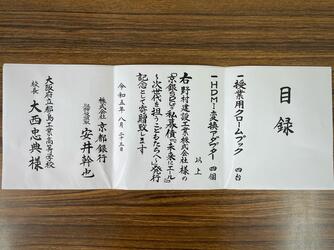 目録
一授業用クロームブック 四台
一HDMI変換アダプター 四個
以上
右 野村建設工業株式会社 様の
「京銀SDGs私募債『未来にエール』
〜次世代を担うこどもたちへ〜」発行
記念として寄贈致します
令和五年八月二十三日
株式会社 京都銀行
取締役頭取 安井幹也
大阪府立都島工業高等学校
校長 大西忠典 様